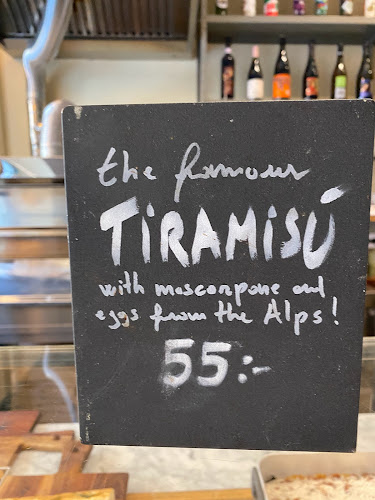 the famous
TIRAMISÚ
with mascarpone and
eggs from the Alps!
55:-